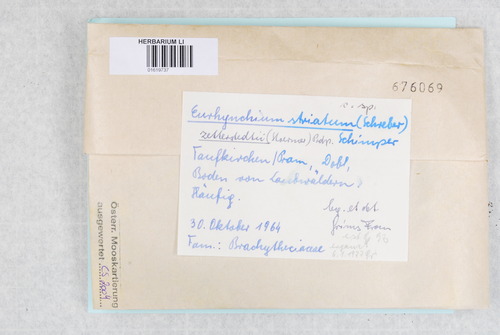 HERBARIUM LI
01619737
676069
c. sp.
Eurhynchium striatum (Schreber)
zetterstedtii (Hoernos) Podp. Schimper
Taufkirchen/Pram, Dobl,
Boden von Laubwäldern,
Häufig.
leg. et det
30. Oktober 1964
Fam.: Brachytheciaceae
Österr. Mooskartierung
ausgewertet: